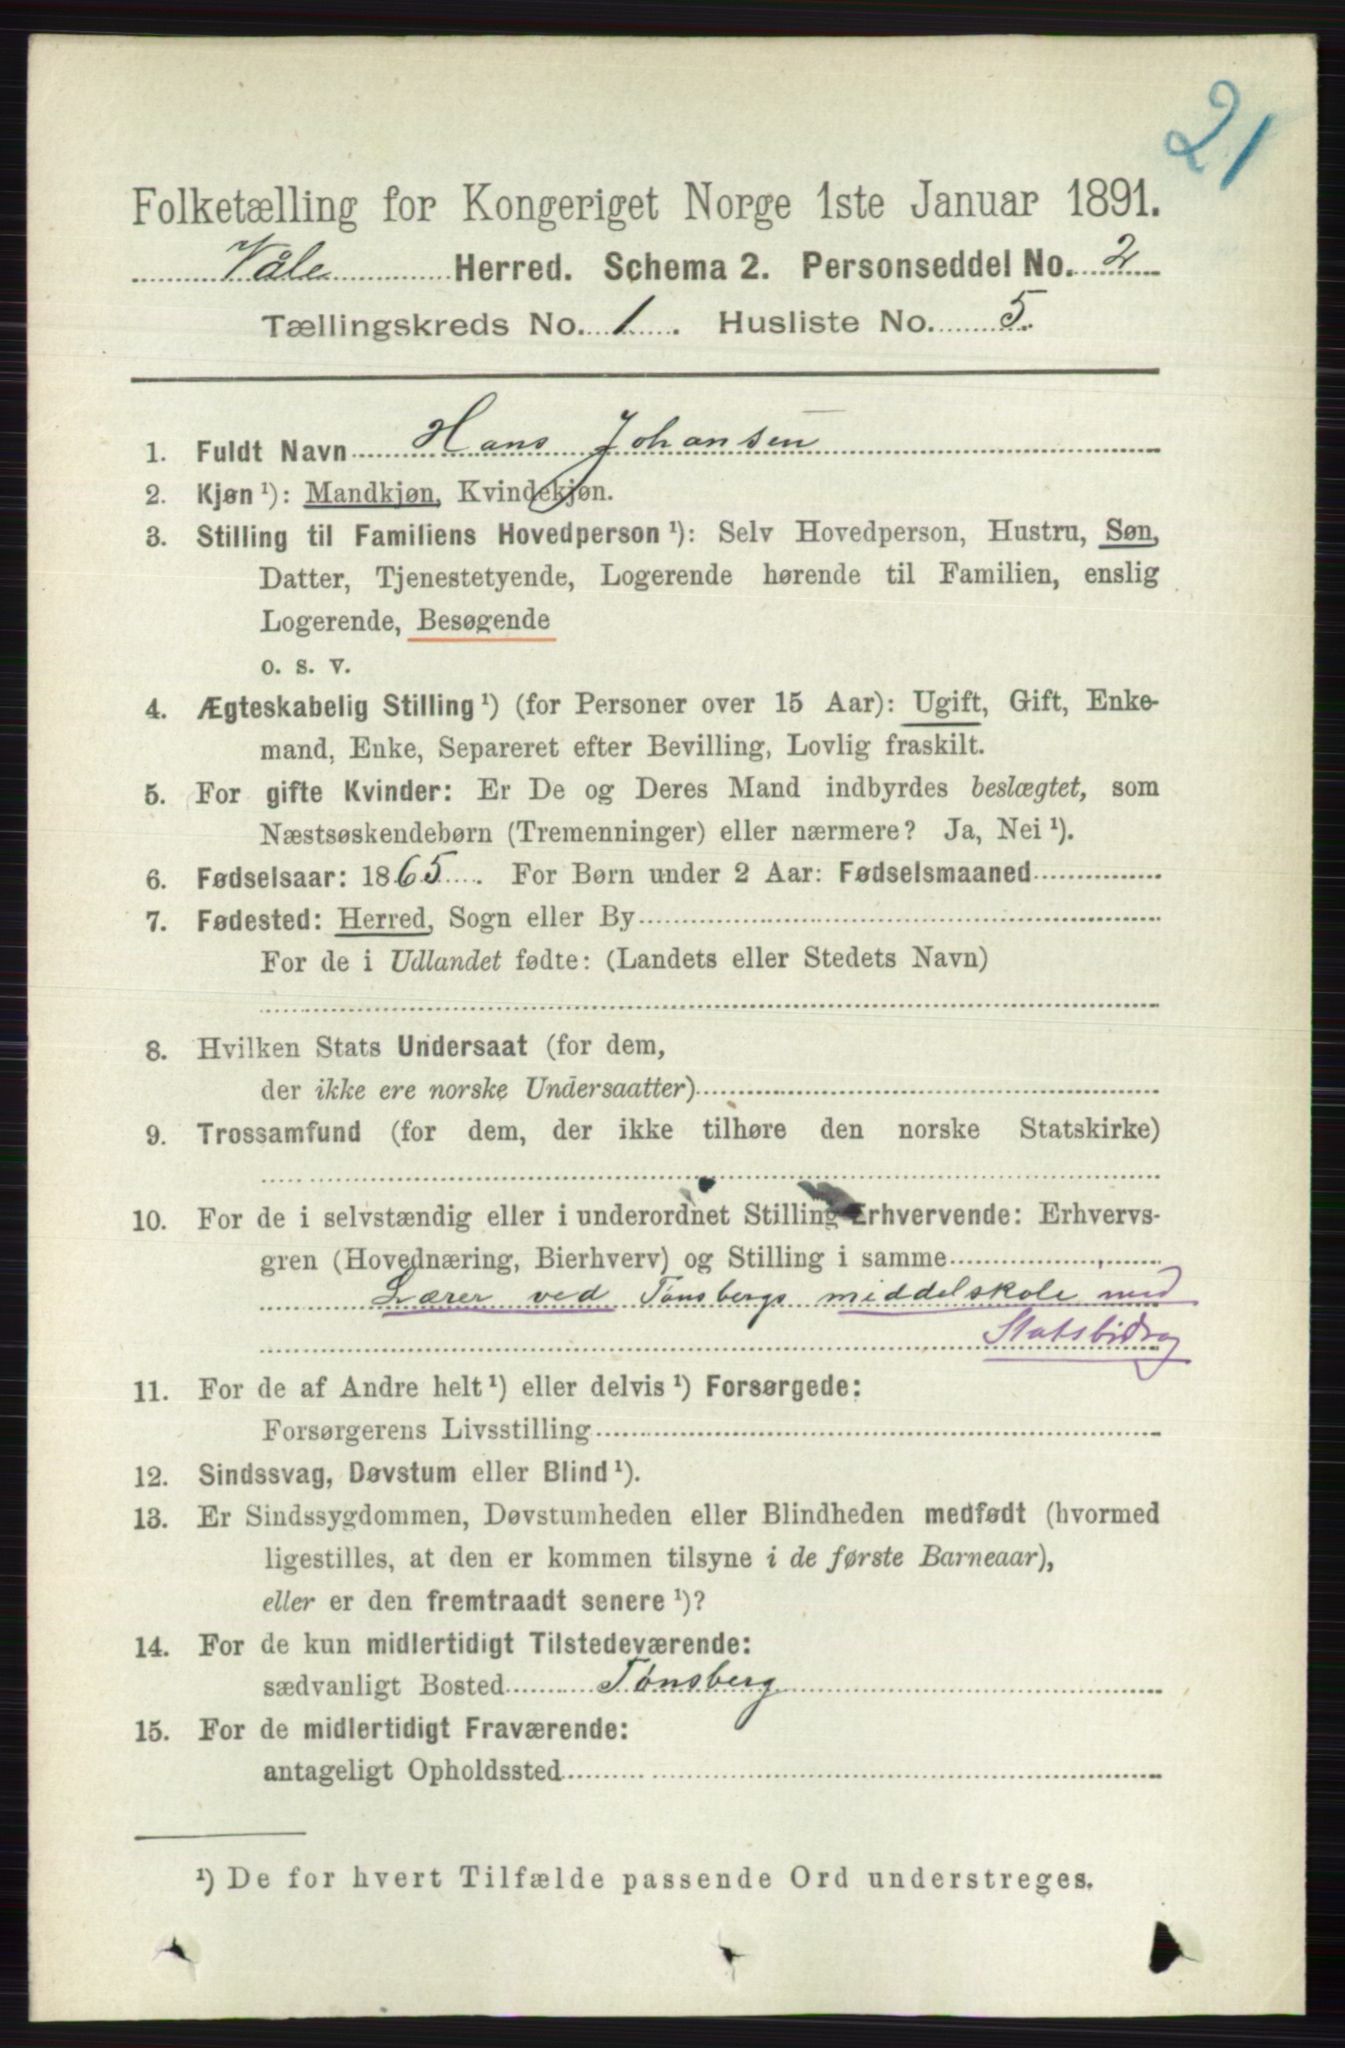 21
Folketælling for Kongeriget Norge 1ste Januar 1891.
Våle Herred. Schema 2. Personseddel No. 2
Tællingskreds No. 1. Husliste No. 5.
1. Fuldt Navn Hans Johansen
2. Kjøn¹): Mandkjøn, Kvindekjøn.
3. Stilling til Familiens Hovedperson¹): Selv Hovedperson, Hustru, Søn,
Datter, Tjenestetyende, Logerende hørende til Familien, enslig
Logerende, Besøgende
o. s. v.
4. Ægteskabelig Stilling¹) (for Personer over 15 Aar): Ugift, Gift, Enke-
mand, Enke, Separeret efter Bevilling, Lovlig fraskilt.
5. For gifte Kvinder: Er De og Deres Mand indbyrdes beslægtet, som
Næstsøskendebørn (Tremenninger) eller nærmere? Ja, Nei¹).
6. Fødselsaar: 1865. For Børn under 2 Aar: Fødselsmaaned
7. Fødested: Herred, Sogn eller By
For de i Udlandet fødte: (Landets eller Stedets Navn)
8. Hvilken Stats Undersaat (for dem,
der ikke ere norske Undersaatter)
9. Trossamfund (for dem, der ikke tilhøre den norske Statskirke)
10. For de i selvstændig eller i underordnet Stilling Erhvervende: Erhvervs-
gren (Hovednæring, Bierhverv) og Stilling i samme
Lærer ved Tønsbergs middelskole med
Statsbidrag
11. For de af Andre helt¹) eller delvis¹) Forsørgede:
Forsørgerens Livsstilling
12. Sindssvag, Døvstum eller Blind¹).
13. Er Sindssygdommen, Døvstumheden eller Blindheden medfødt (hvormed
ligestilles, at den er kommen tilsyne i de første Barneaar),
eller er den fremtraadt senere¹)?
14. For de kun midlertidigt Tilstedeværende:
sædvanligt Bosted Tønsberg
15. For de midlertidigt Fraværende:
antageligt Opholdssted
¹) De for hvert Tilfælde passende Ord understreges.